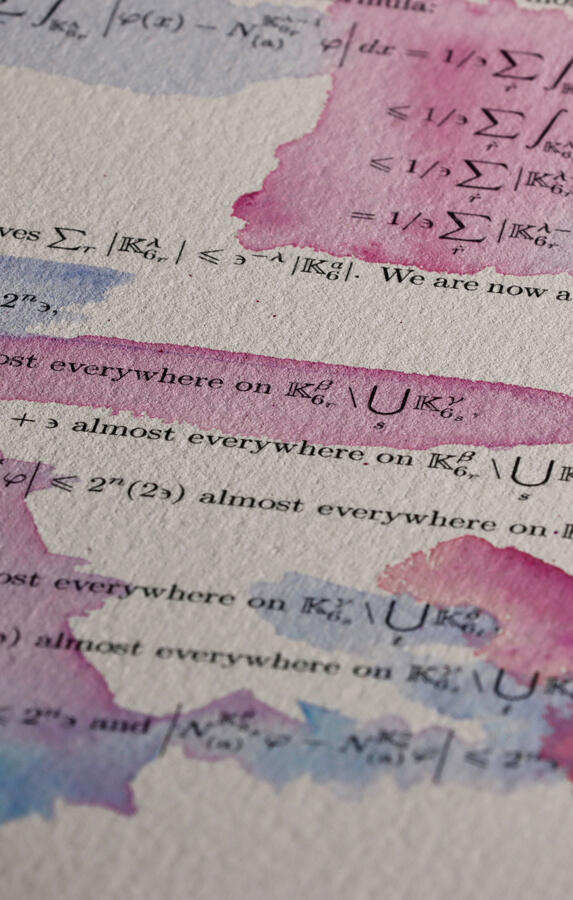 rmula:
∑ ∫_{𝕂^λ_{6_r}} |φ(x) − N^{𝕂^{λ−1}_{6_r}}_{(a)} φ| dx = 1/϶ ∑_r ∫
⩽ 1/϶ ∑_r ∫_{𝕂^λ_{6_r}}
⩽ 1/϶ ∑_r |𝕂^{λ−}_{6_r}
= 1/϶ ∑_r |𝕂^{λ−}_{6_r}
ves ∑_r |𝕂^λ_{6_r}| ⩽ ϶^{−λ} |𝕂^α_6|. We are now a
2^n϶,
ost everywhere on 𝕂^β_{6_r} \ ⋃_s 𝕂^γ_{6_s},
+ ϶ almost everywhere on 𝕂^β_{6_r} \ ⋃_s 𝕂
φ| ⩽ 2^n(2϶) almost everywhere on
ost everywhere on 𝕂^γ_{6_s} \ ⋃_t 𝕂^δ_{6_t},
϶) almost everywhere on 𝕂^γ_{6_s} \ ⋃_t 𝕂
⩽ 2^n϶ and |N_{(a)} φ − N_{(a)} φ| ⩽ 2^n϶,